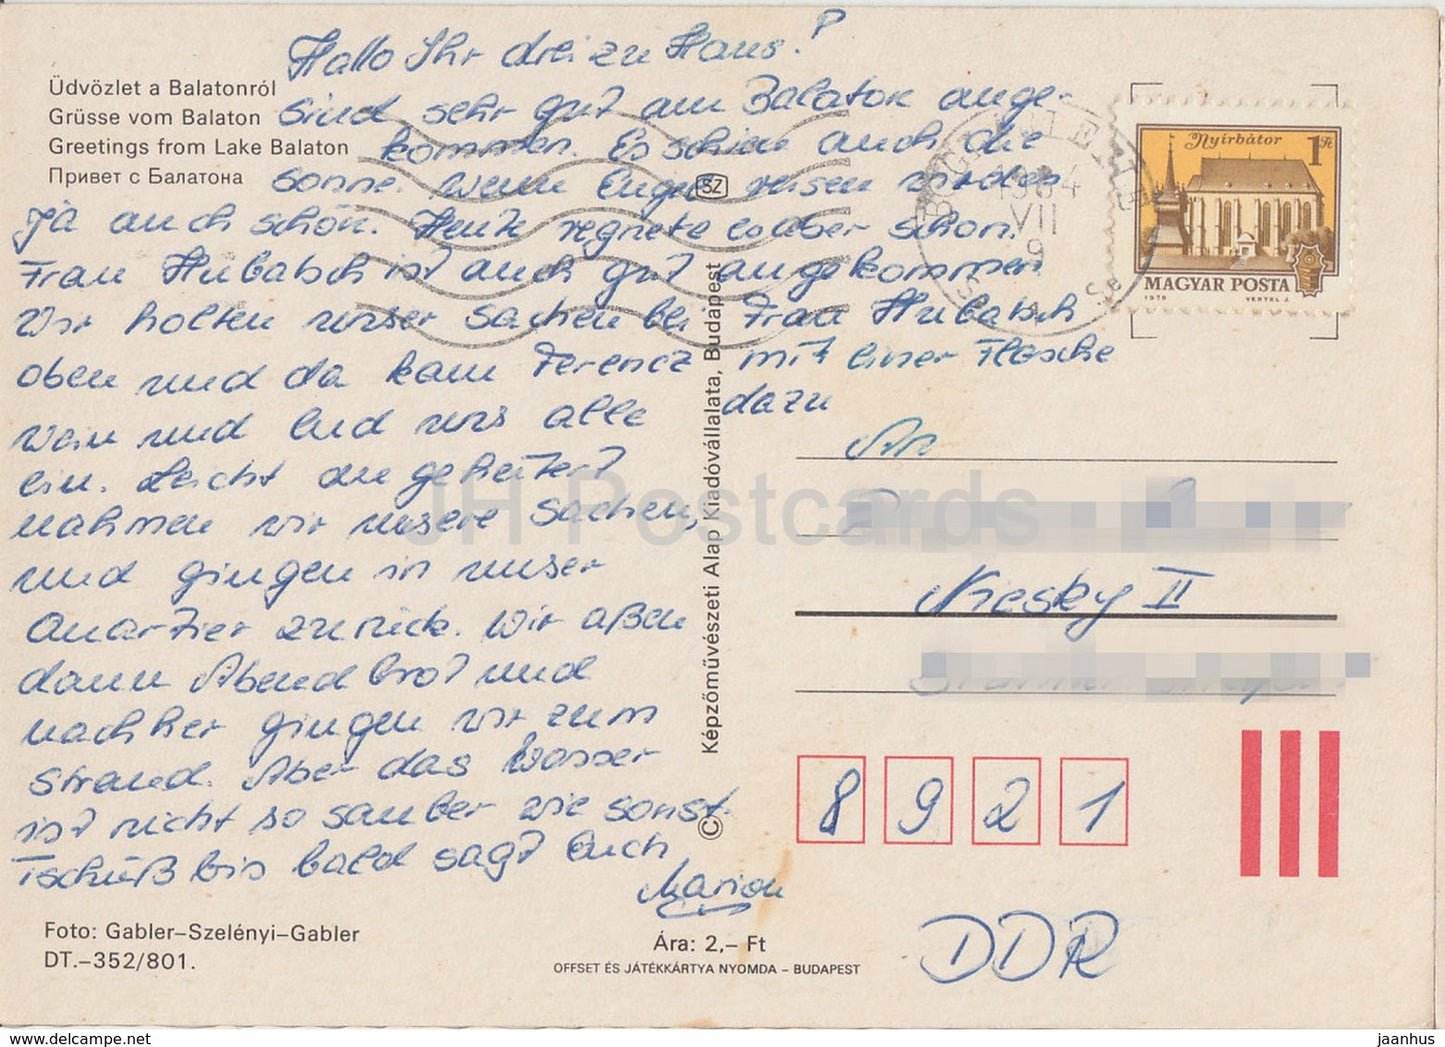 Hallo Ihr drei zu Haus!
Üdvözlet a Balatonról
Grüsse vom Balaton
Greetings from Lake Balaton
Привет с Балатона
sind sehr gut am Balaton ange-
kommen. Es schien auch die
Sonne. Wenn Engel reisen
ja auch schön. Heute regnete es aber schon.
Frau Hubatsch ist auch gut angekommen
Wir holten unser Sachen bei Frau Hubatsch
oben und da kam Ferenc mit einer Flasche
Wein und lud uns alle dazu
ein. Leicht angeheitert
nahmen wir unsere Sachen,
und gingen in unser
Quartier zurück. Wir aßen
dann Abendbrot und
nachher gingen wir zum
Strand. Aber das Wasser
ist nicht so sauber wie sonst.
Tschüß bis bald sagt Euch
Marion
SZ
1984
VII
9
Nyírbátor 1Ft
MAGYAR POSTA
1979 VERTEL J.
Képzőművészeti Alap Kiadóvállalata, Budapest
©
An
Niesky II
8 9 2 1
DDR
Foto: Gabler–Szelényi–Gabler
DT.–352/801.
Ára: 2,– Ft
OFFSET ÉS JÁTÉKKÁRTYA NYOMDA – BUDAPEST
JH Postcards
jaanhus
http://www.delcampe.net